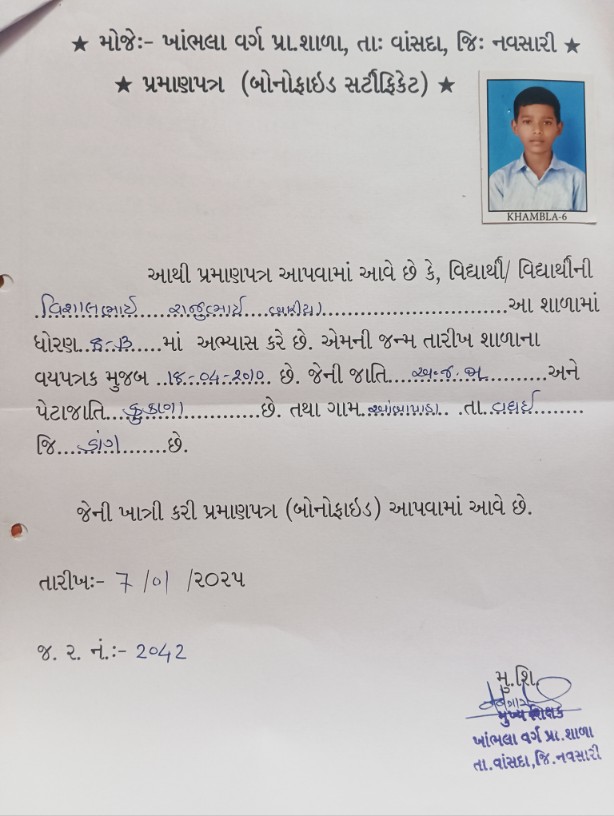 ★ મોજેઃ- ખાંભલા વર્ગ પ્રા.શાળા, તાઃ વાંસદા, જિઃ નવસારી ★
★ પ્રમાણપત્ર (બોનોફાઇડ સર્ટીફિકેટ) ★
KHAMBLA-6
આથી પ્રમાણપત્ર આપવામાં આવે છે કે, વિદ્યાર્થી/ વિદ્યાર્થીની
વિશાલભાઈ રાજુભાઈ ......આ શાળામાં
ધોરણ..8-B......માં અભ્યાસ કરે છે. એમની જન્મ તારીખ શાળાના
વયપત્રક મુજબ ..18-04-2010. છે. જેની જાતિ....અ.જ.જા............અને
પેટાજાતિ....કુકણા.............છે. તથા ગામ..આંબાપાડા.. .તા..વઘઈ........
જિ....ડાંગ........છે.
જેની ખાત્રી કરી પ્રમાણપત્ર (બોનોફાઇડ) આપવામાં આવે છે.
તારીખઃ- 7 /01 /૨૦૨૫
જ. ર. નં.ઃ- 2042
મુ.શિ.
મુખ્ય શિક્ષક
ખાંભલા વર્ગ પ્રા.શાળા
તા.વાંસદા,જિ.નવસારી